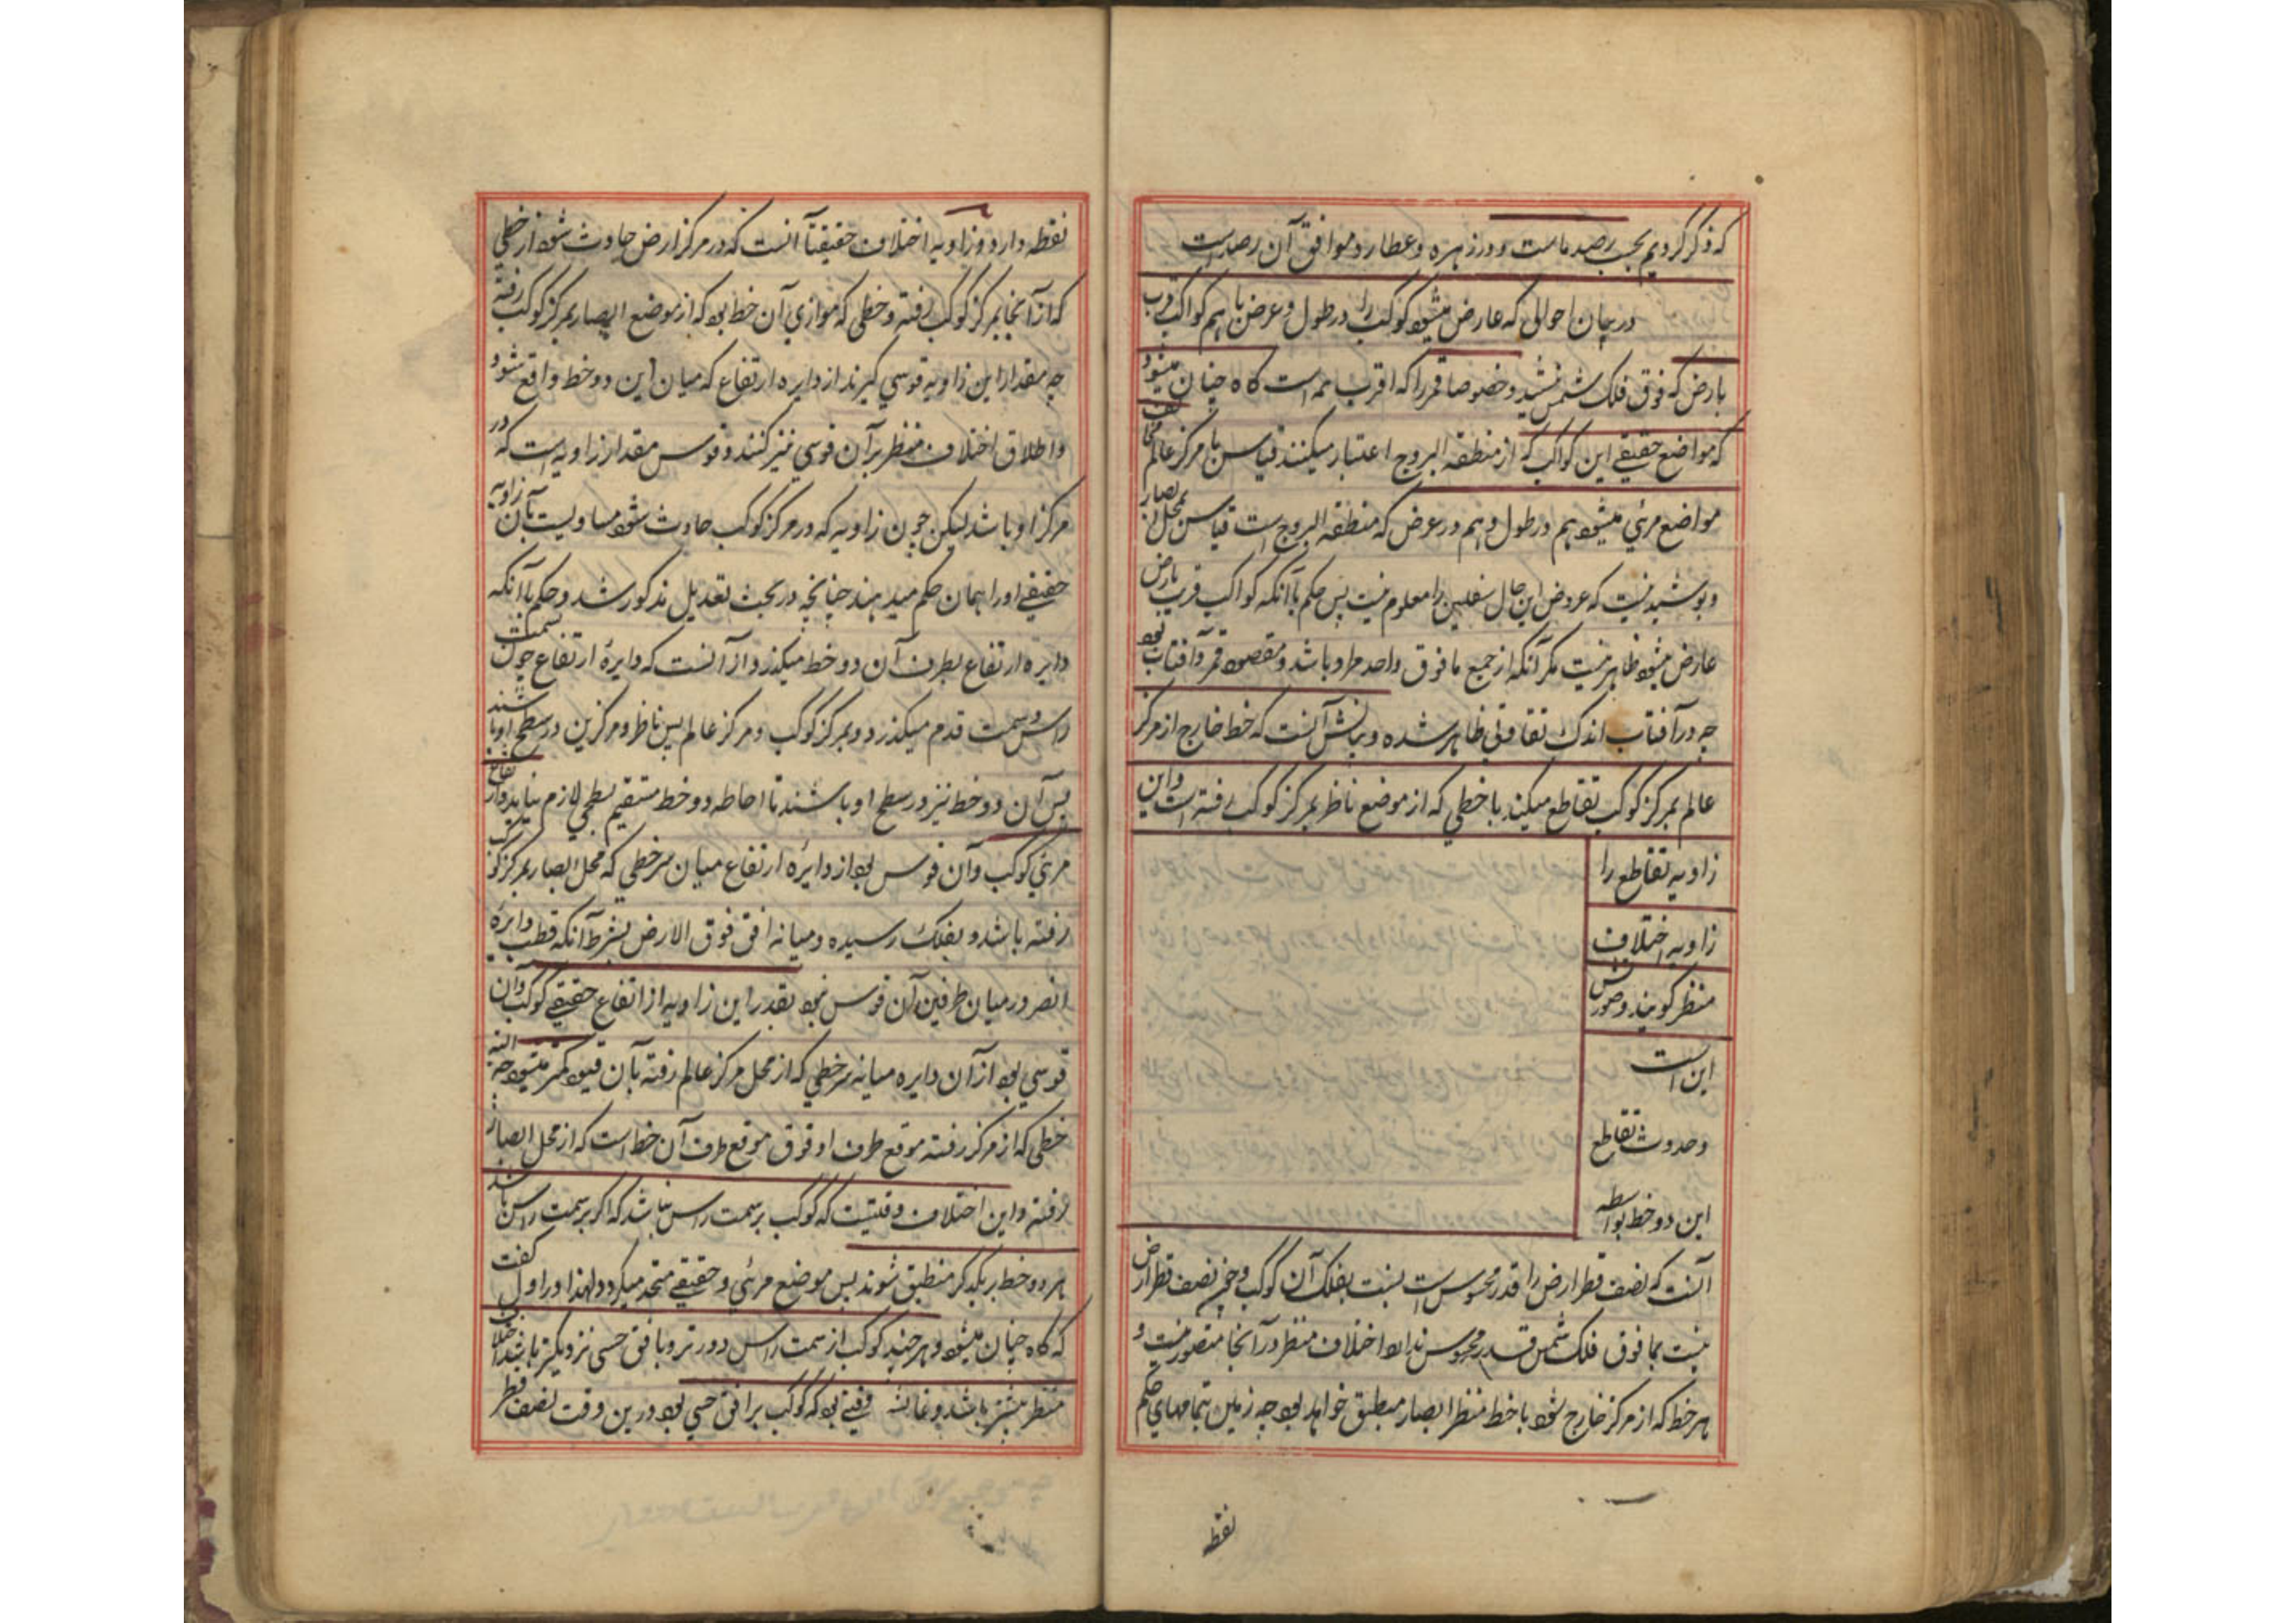 که ذکر کردیم بحسب رصد ماست و در زهره و عطارد موافق آن رصد است
در بیان احوالی که عارض میشود کوکب را در طول و عرض باهم کواکب قریب
بارض که فوق فلک شمس نشید و خصوصا قمر را که اقرب همه است کاه چنان میشود
که مواضع حقیقی این کواکب که از منطقه البروج اعتبار میکنند قیاس با مرکز عالم مخالف
مواضع مرئی میشود هم در طول و هم در عرض که منطقه البروج است قیاس بمحل ابصار
و پوشیده نیست که عروض این حال سفلیین را معلوم نیست پس حکم بآنکه کواکب قریب بارض
عارض میشود ظاهر نیست مکر آنکه از جمیع ما فوق واحد مراد باشد و مقصود قمر و آفتاب بود
چه در آفتاب اندک تفاوتی ظاهر شده و بیانش آنست که خط خارج از مرکز
عالم بمرکز کوکب تقاطع میکند با خطی که از موضع ناظر بمرکز کوکب رفته است و این
زاویه تقاطع را
زاویه اختلاف
منظر کویند و صورتش
این است
و حدوث تقاطع
این دو خط بواسطه
آنست که نصف قطر ارض را قدر محسوس است بنسبت بفلک آن کوکب و چون نصف قطر ارض
بنسبت بما فوق فلک شمس قدر محسوس ندارد اختلاف منظر در آنجا متصور نیست و
هر خط که از مرکز خارج شود با خط منظر ابصار منطبق خواهد بود چه زمین بتمامها حکم
نقطه
نقطه دارد و زاویه اختلاف حقیقتا آنست که در مرکز ارض حادث شود از خطی
که از آنجا بمرکز کوکب رفته و خطی که موازی آن خط بود که از موضع ابصار بمرکز کوکب رفته
چه مقدار این زاویه قوسی کیرند از دایره ارتفاع که میان این دو خط واقع شود
و اطلاق اختلاف منظر بر آن قوسی نیز کنند و قوس مقدار زاویه است که در
مرکز او باشد لیکن چون زاویه که در مرکز کوکب حادث شود مساویست بآن زاویه
حقیقی او را همان حکم میدهند چنانچه در بحث تعدیل مذکور شد و حکم بآنکه
دایره ارتفاع بطرف آن دو خط میکذرد از آنست که دایره ارتفاع چون بسمت
راس و سمت قدم میکذرد و بمرکز کوکب و مرکز عالم پس ناظر و مرکزین در سطح او باشند
پس آن دو خط نیز در سطح او باشند تا احاطه دو خط مستقیم بسطحی لازم نیاید و ارتفاع
مرئی کوکب و آن قوس بود از دایره ارتفاع میان سر خطی که محل ابصار بمرکز کوکب
رفته باشد و بفلک رسیده و میانه افق فوق الارض بشرط آنکه قطب دایره
انصر در میان طرفین آن قوس نبود بقدر این زاویه از ارتفاع حقیقی کوکب و آن
قوسی بود از آن دایره میانه سر خطی که از محل مرکز عالم رفته بآن قیود کمتر میشود چه البته
خطی که از مرکز رفته موقع طرف او فوق موقع طرف آن خط است که از محل ابصار
رفته و این اختلاف وقتیست که کوکب بر سمت راس نباشد که اکر بر سمت راس باشد
هر دو خط بر یکدکر منطبق شوند پس موضع مرئی و حقیقی متحد میکردد لهذا در اول کفت
که کاه چنان میشود و هر چند کوکب از سمت راس دورتر و بافق حسی نزدیکتر باشد اختلاف
منظر بیشتر باشد و غایتش وقتی بود که کوکب بر افق حسی بود درین وقت نصف قطر